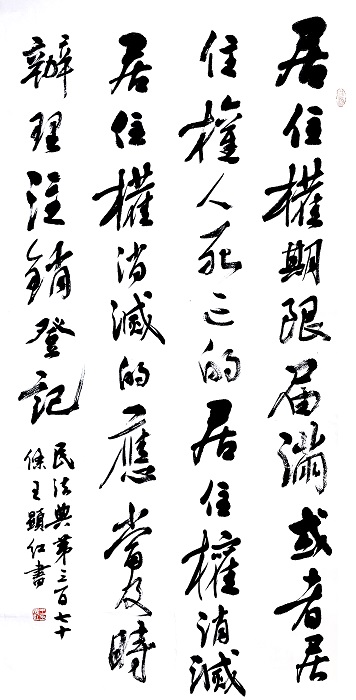 居住權期限届满或者居
住權人死亡的居住權消滅
居住權消滅的應當及時
辦理注銷登記
民法典第三百七十
條王顯紅書